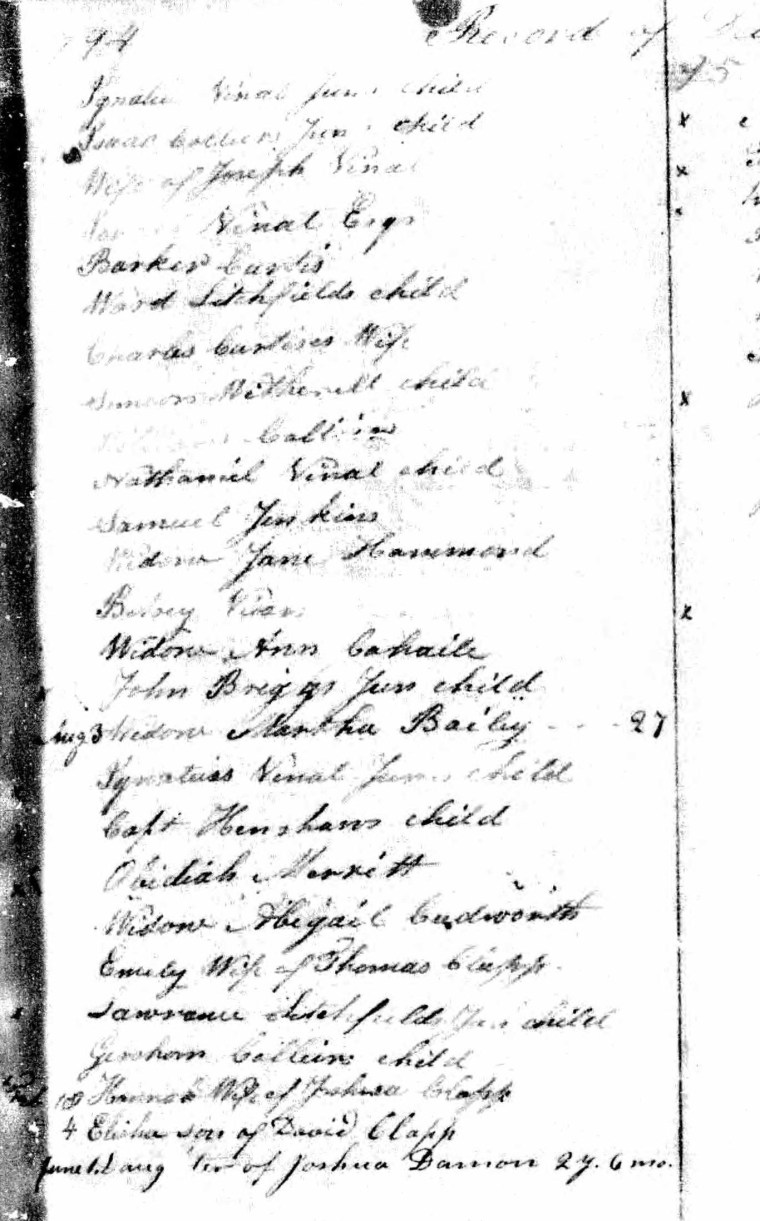 94 Record of
Ignatius Vinal Jun. child
Isaac Colliers Jun. child
Wife of Joseph Vinal
Vinal Esqr
Barker Curtis
Ward Litchfields child
Charles Curtises Wife
Witherell child
Nathaniel Vinal child
Samuel Jenkins
Widow Jane Hammond
Betsey
Widow Ann Cahaile
John Briggs Jun child
Aug 3 Widow Martha Bailey - - - 27
Ignatius Vinal Jun. child
Capt Henshaws child
Obidiah Merritt
Widow Abigail Cudworth
Emily Wife of Thomas Clapp.
Lawrance Litchfields Jun child
Gershom child
18 Wife of Joshua Clapp
4 Elisha son of David Clapp
June of Joshua Damon 2 y. 6 mo.